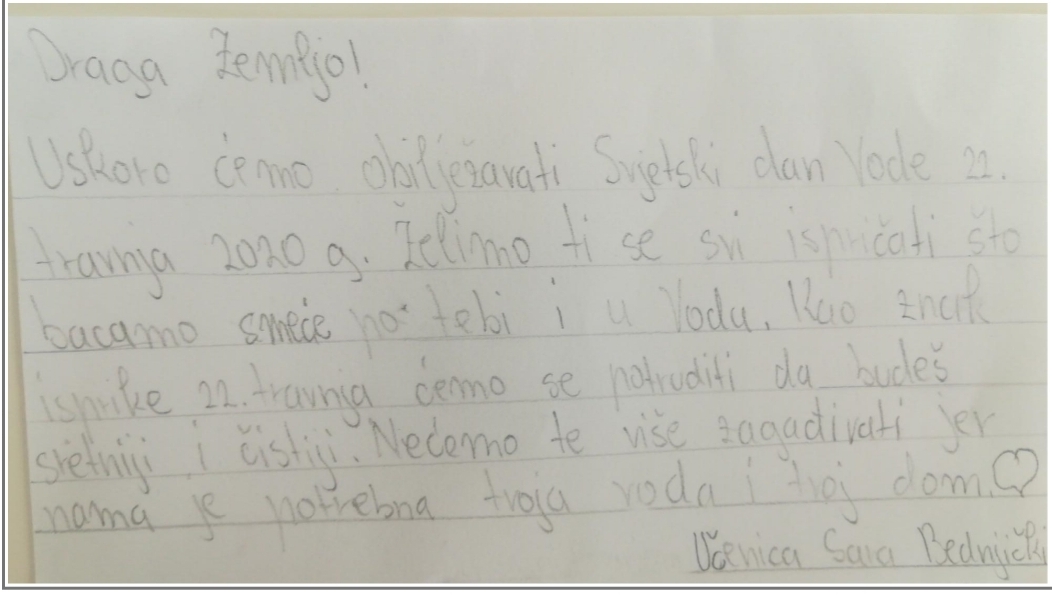 Draga Zemljo!
Uskoro ćemo obilježavati Svjetski dan Vode 22.
travnja 2020 g. Želimo ti se svi ispričati što
bacamo smeće po tebi i u Vodu. Kao znak
isprike 22. travnja ćemo se potruditi da budeš
sretniji i čistiji. Nećemo te više zagađivati jer
nama je potrebna tvoja voda i tvoj dom. ♡
Učenica Sara Bednjički